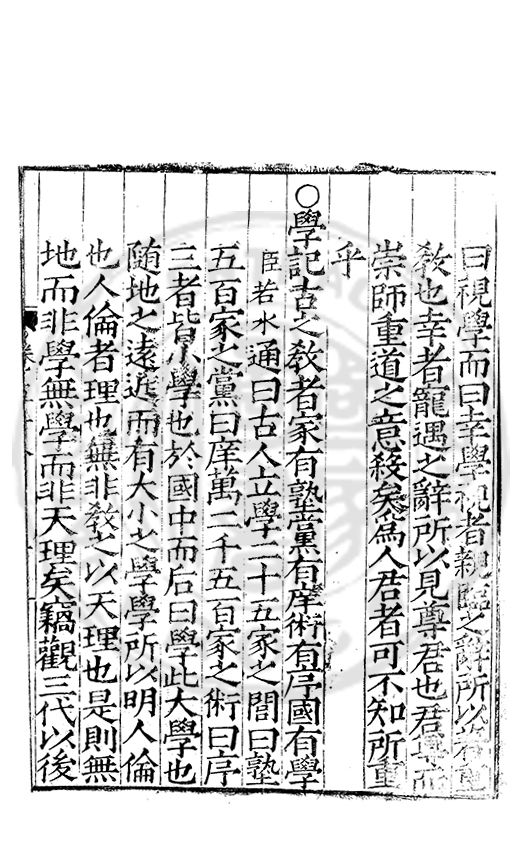 曰視學而曰幸學視者親臨之辭所以着重
敎也幸者寵遇之辭所以見尊君也君尊而
崇師重道之意殺矣爲人君者可不知所重
乎
○學記古之敎者家有塾黨有庠術有序國有學
臣若水通曰古人立學二十五家之閭曰塾
五百家之黨曰庠萬二千五百家之術曰序
三者皆小學也於國中而后曰學此大學也
随地之遠近而有大小之學學所以明人倫
也人倫者理也無非敎之以天理也是則無
地而非學無學而非天理矣竊觀三代以後